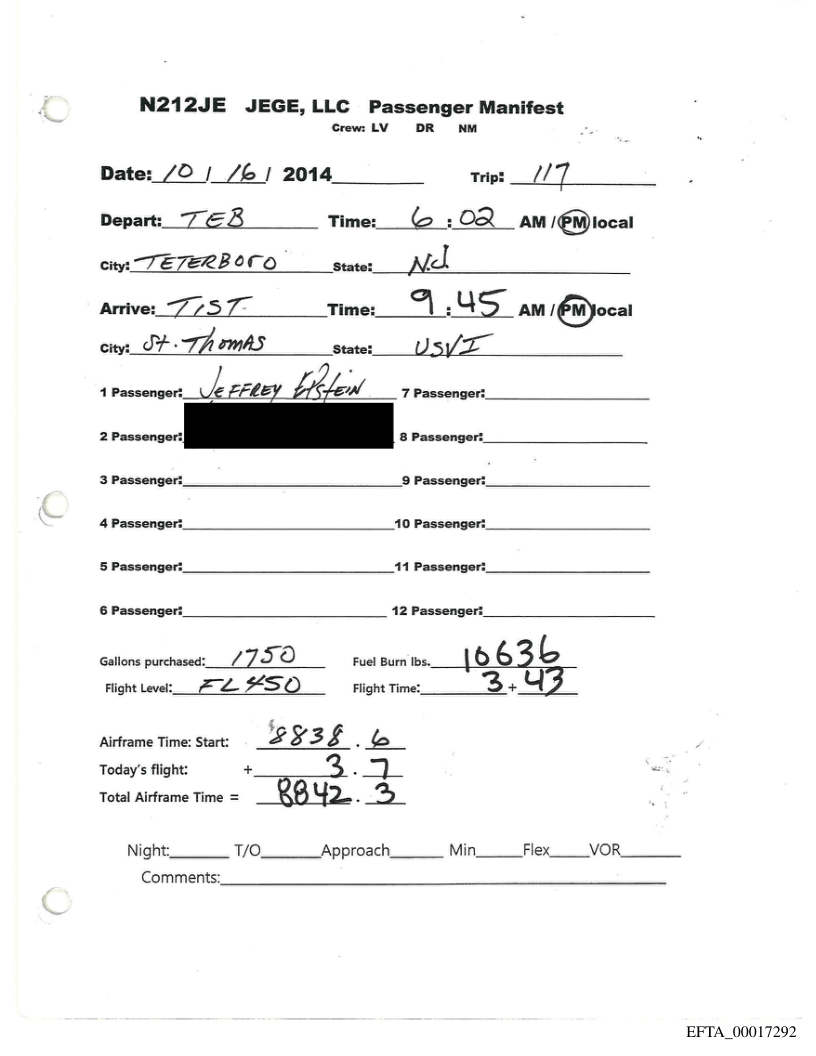 N212JE JEGE, LLC Passenger Manifest
Crew: LV DR NM
Date: 10 / 16 / 2014 Trip: 117
Depart: TEB Time: 6 : 02 AM / PM local
City: TETERBORO State: N.J
Arrive: TIST Time: 9 : 45 AM / PM local
City: St. Thomas State: USVI
1 Passenger: Jeffrey Epstein 7 Passenger:
2 Passenger: 8 Passenger:
3 Passenger: 9 Passenger:
4 Passenger: 10 Passenger:
5 Passenger: 11 Passenger:
6 Passenger: 12 Passenger:
Gallons purchased: 1750 Fuel Burn lbs. 10636
Flight Level: FL 450 Flight Time: 3 + 43
Airframe Time: Start: 8838 . 6
Today's flight: + 3 . 7
Total Airframe Time = 8842 . 3
Night: T/O Approach Min Flex VOR
Comments:
EFTA_00017292